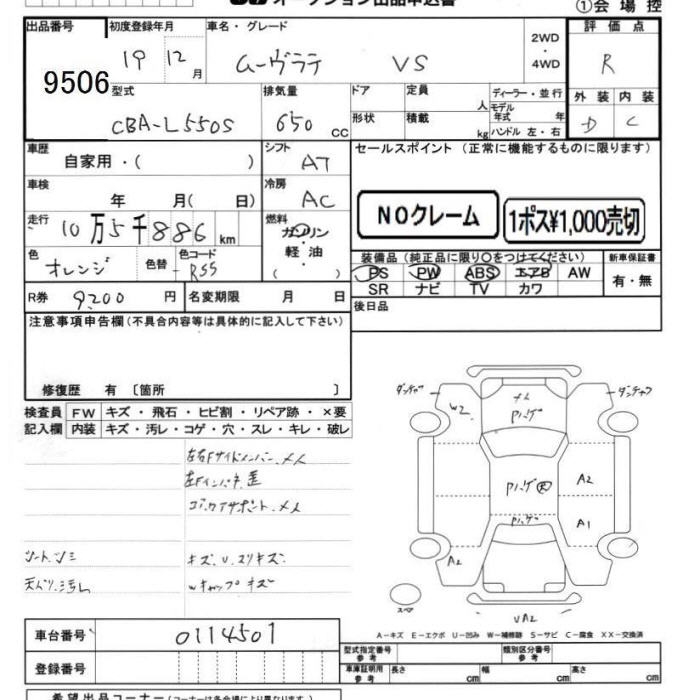 オークション出品申込書
①会場控
出品番号 初度登録年月 車名・グレード 2WD・4WD 評価点
9506 19 12月 ムーヴラテ VS R
型式 排気量 ドア 定員 人 ディーラー・並行 外装 内装
CBA-L550S 650 cc 形状 積載 kg モデル年式 年 ハンドル 左・右 D C
車歴 シフト セールスポイント (正常に機能するものに限ります)
自家用・( ) AT
車検 冷房
年 月( 日) AC
NOクレーム 1ポス¥1,000売切
走行 燃料
10万5千886km ガソリン・軽油 ( )
色 色替 色コード
オレンジ R55
装備品 (純正品に限り○をつけてください) 新車保証書
PS PW ABS エアB AW 有・無
SR ナビ TV カワ
R券 9200円 名変期限 月 日
後日品
注意事項申告欄 (不具合内容等は具体的に記入して下さい)
修復歴 有 〔箇所 〕
検査員 FW キズ・飛石・ヒビ割・リペア跡・×要
記入欄 内装 キズ・汚レ・コゲ・穴・スレ・キレ・破レ
左右Fサイドメンバー メレ
左Fインパネ 歪
コアサポート メレ
シート シミ キズ.U.スリキズ
天バリ 汚レ Wキャップキズ
W2
A2
A1
A2
スペア
VA2
A―キズ E―エクボ U―凹み W―補修跡 S―サビ C―腐食 XX―交換済
車台番号 0114501
型式指定番号 参考 類別区分番号 参考
登録番号
車庫証明用 参考 長さ cm 幅 cm 高さ cm
希望出品コーナー (コーナーは各会場により異なります。)